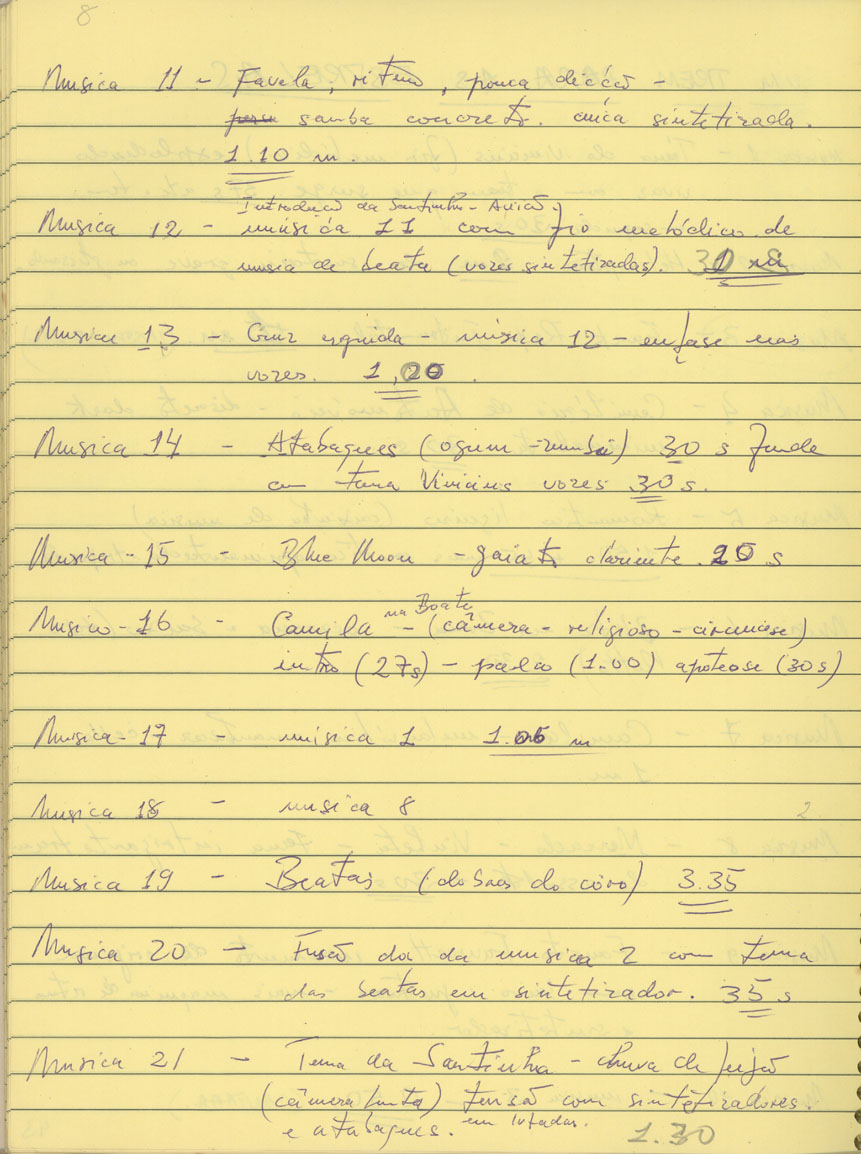 8
Musica 11 - Favela, ritmo, pouca dicção -
samba concreto. cuica sintetizada.
1.10 m.
Introdução da Santinha - Avião
Musica 12 - música 11 com fio melódico de
musica de beata (vozes sintetizadas). 1 m
Musica 13 - Cruz erguida - música 12 - enfase nas
vozes. 1,20.
Musica 14 - Atabaques (ogum - zumbi) 30 s funde
com tema Vinicius vozes 30 s.
Musica - 15 - Blue Moon - gaiata clarinete. 20 s
na Boate
Musica - 16 - Camila - (câmera - religioso - circense)
intro (27s) - palco (1.00) apoteose (30s)
Musica - 17 - música 1 1.05 m
Musica 18 - musica 8
2
Musica 19 - Beatas (dobras do côro) 3.35
Musica 20 - Fusão da da musica 2 com tema
das beatas em sintetizador. 35 s
Musica 21 - Tema da Santinha - chuva de feijão
(câmera lenta) tensão com sintetizadores.
e atabaques. em
1.30